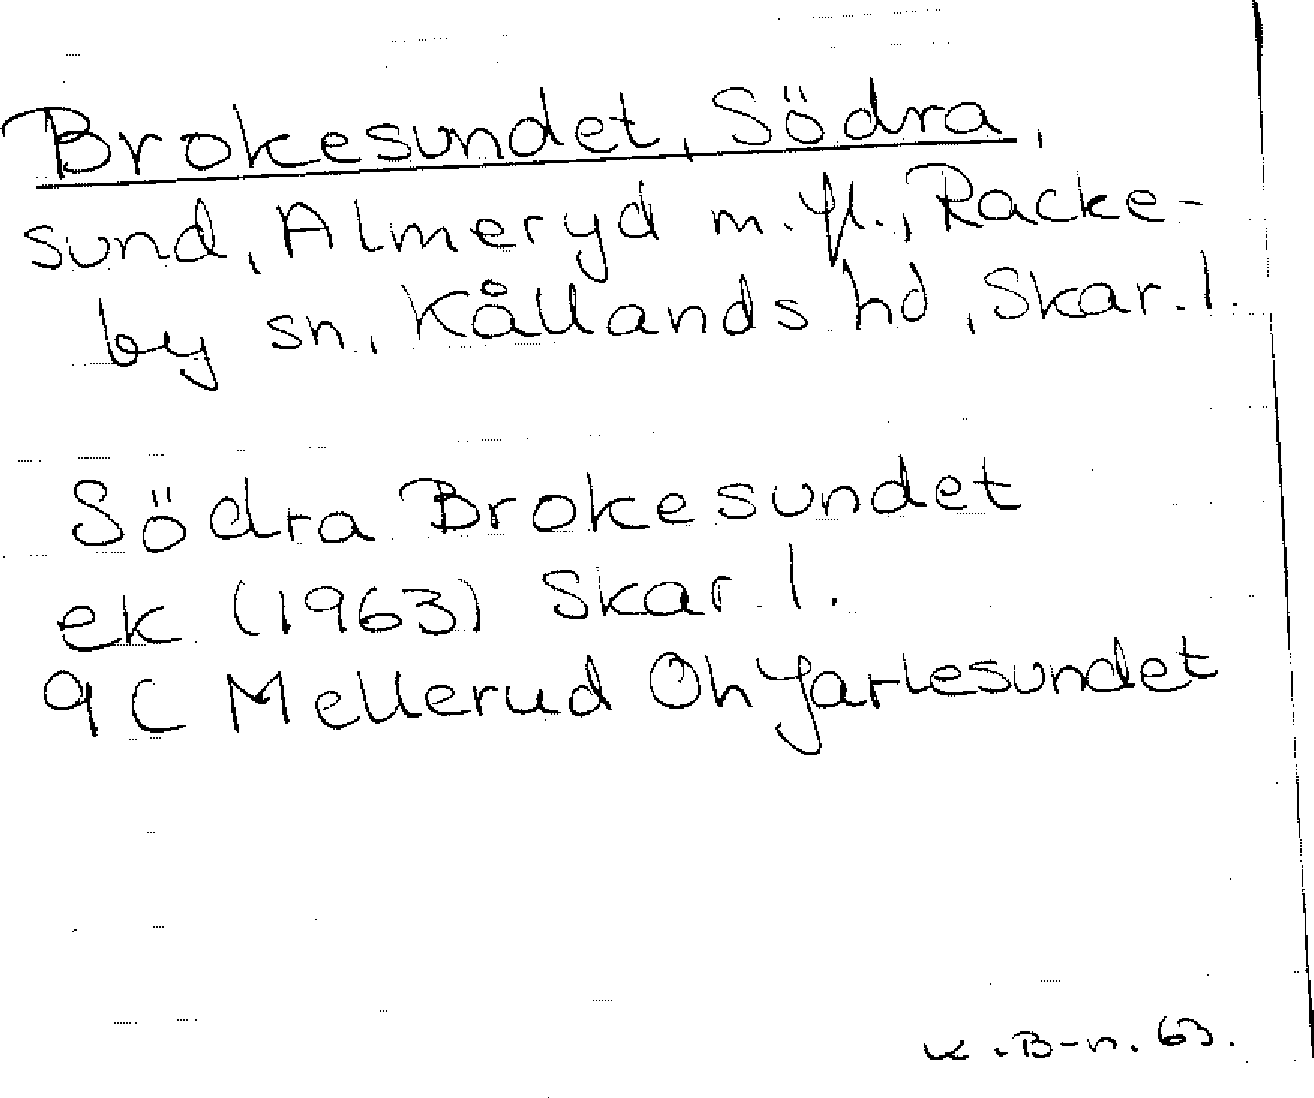 Brokesundet, Södra,
sund, Almeryd m.fl., Racke-
by sn, Kållands hd, Skar. l.
Södra Brokesundet
ek (1963) Skar. l.
9 C Mellerud Öh Jarlesundet
K.B-n. 63.